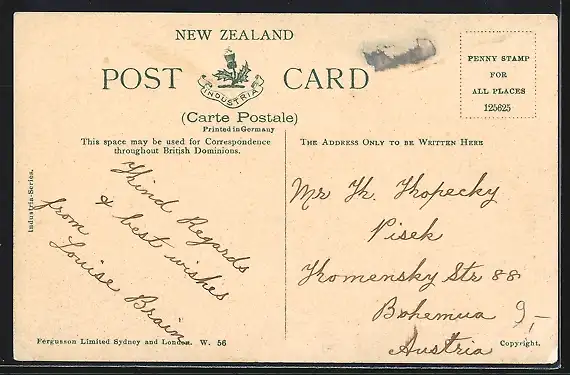 NEW ZEALAND
POST CARD
INDUSTRIA
(Carte Postale)
Printed in Germany
PENNY STAMP
FOR
ALL PLACES
125625
This space may be used for Correspondence
throughout British Dominions.
THE ADDRESS ONLY TO BE WRITTEN HERE
Industria-Series.
Kind Regards
& best wishes
from
Louise Brain
Mr K. Kopecky
Pisek
Komensky Str 88
Bohemua
9,-
Austria
Fergusson Limited Sydney and London. W. 56
Copyright.